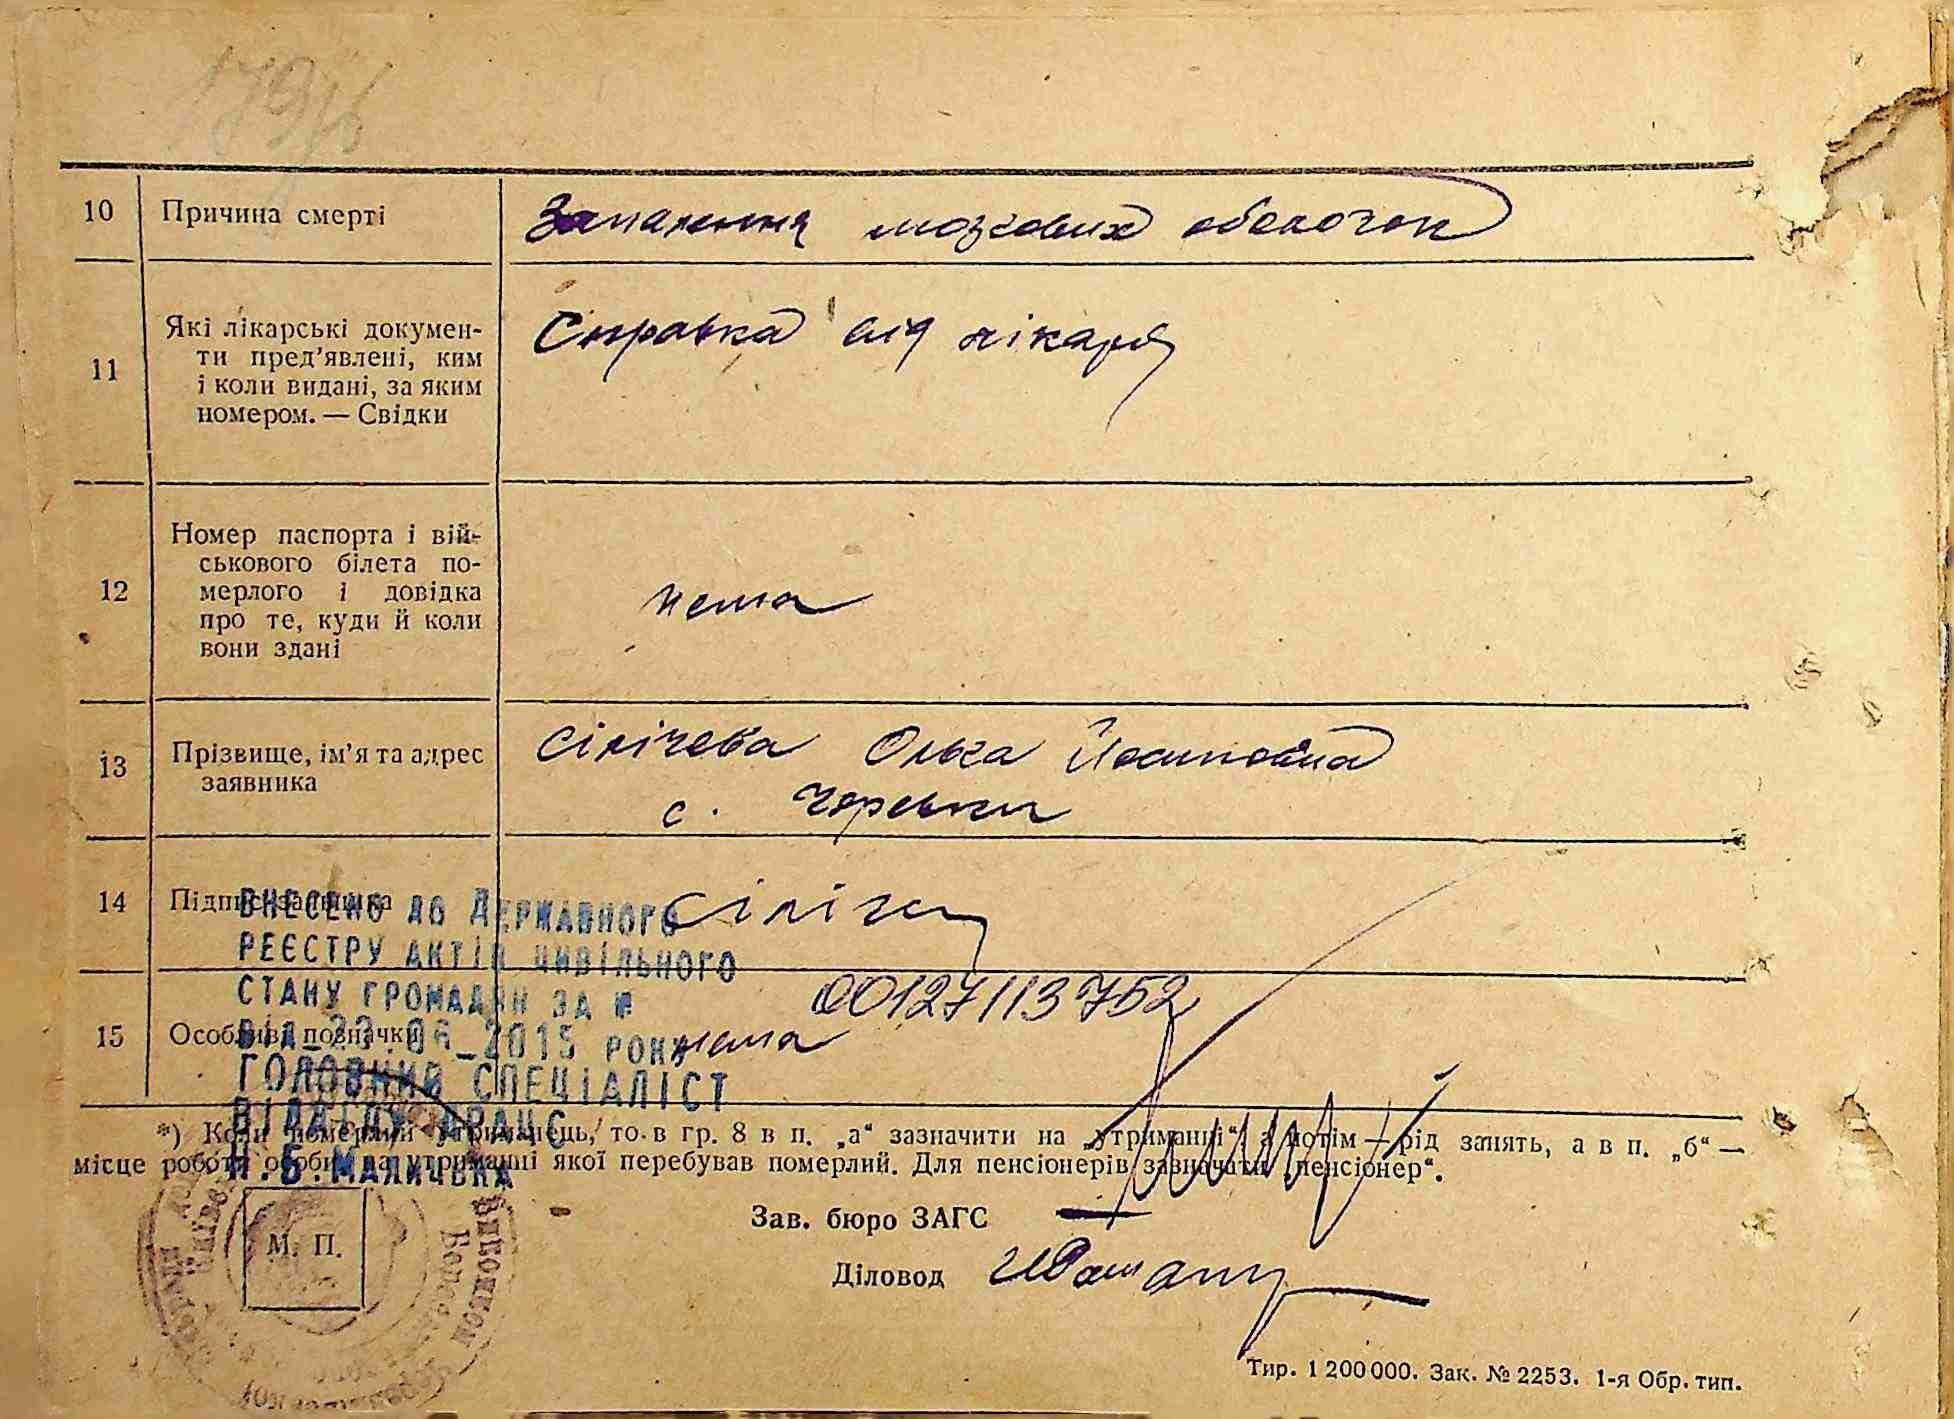 10 Причина смерті Запалення мозкових оболочок
11 Які лікарські докумен-
ти пред’явлені, ким
і коли видані, за яким
номером. — Свідки
Справка від лікаря
12 Номер паспорта і вій-
ськового білета по-
мерлого і довідка
про те, куди й коли
вони здані
нема
13 Прізвище, ім’я та адрес
заявника
Сілічева Ольга Йосиповна
с. Черевки
14 Підпис заявника Сіліч
ВНЕСЕНО ДО ДЕРЖАВНОГО
РЕЄСТРУ АКТІВ ЦИВІЛЬНОГО
СТАНУ ГРОМАДЯН ЗА № 00127113752
15 Особливі позначки нема
ВІД 06 2015 РОКУ
ГОЛОВНИЙ СПЕЦІАЛІСТ
ВІДДІЛУ ДРАЦС
Н.Б.МАЛИЧЕВА
*) Коли померлий утриманець, то в гр. 8 в п. „а“ зазначити на „утриманні“, а потім — рід занять, а в п. „б“ —
місце роботи особи, на утриманні якої перебував померлий. Для пенсіонерів зазначати „пенсіонер“.
Зав. бюро ЗАГС
М. П.
Діловод
Тир. 1 200 000. Зак. № 2253. 1-я Обр. тип.